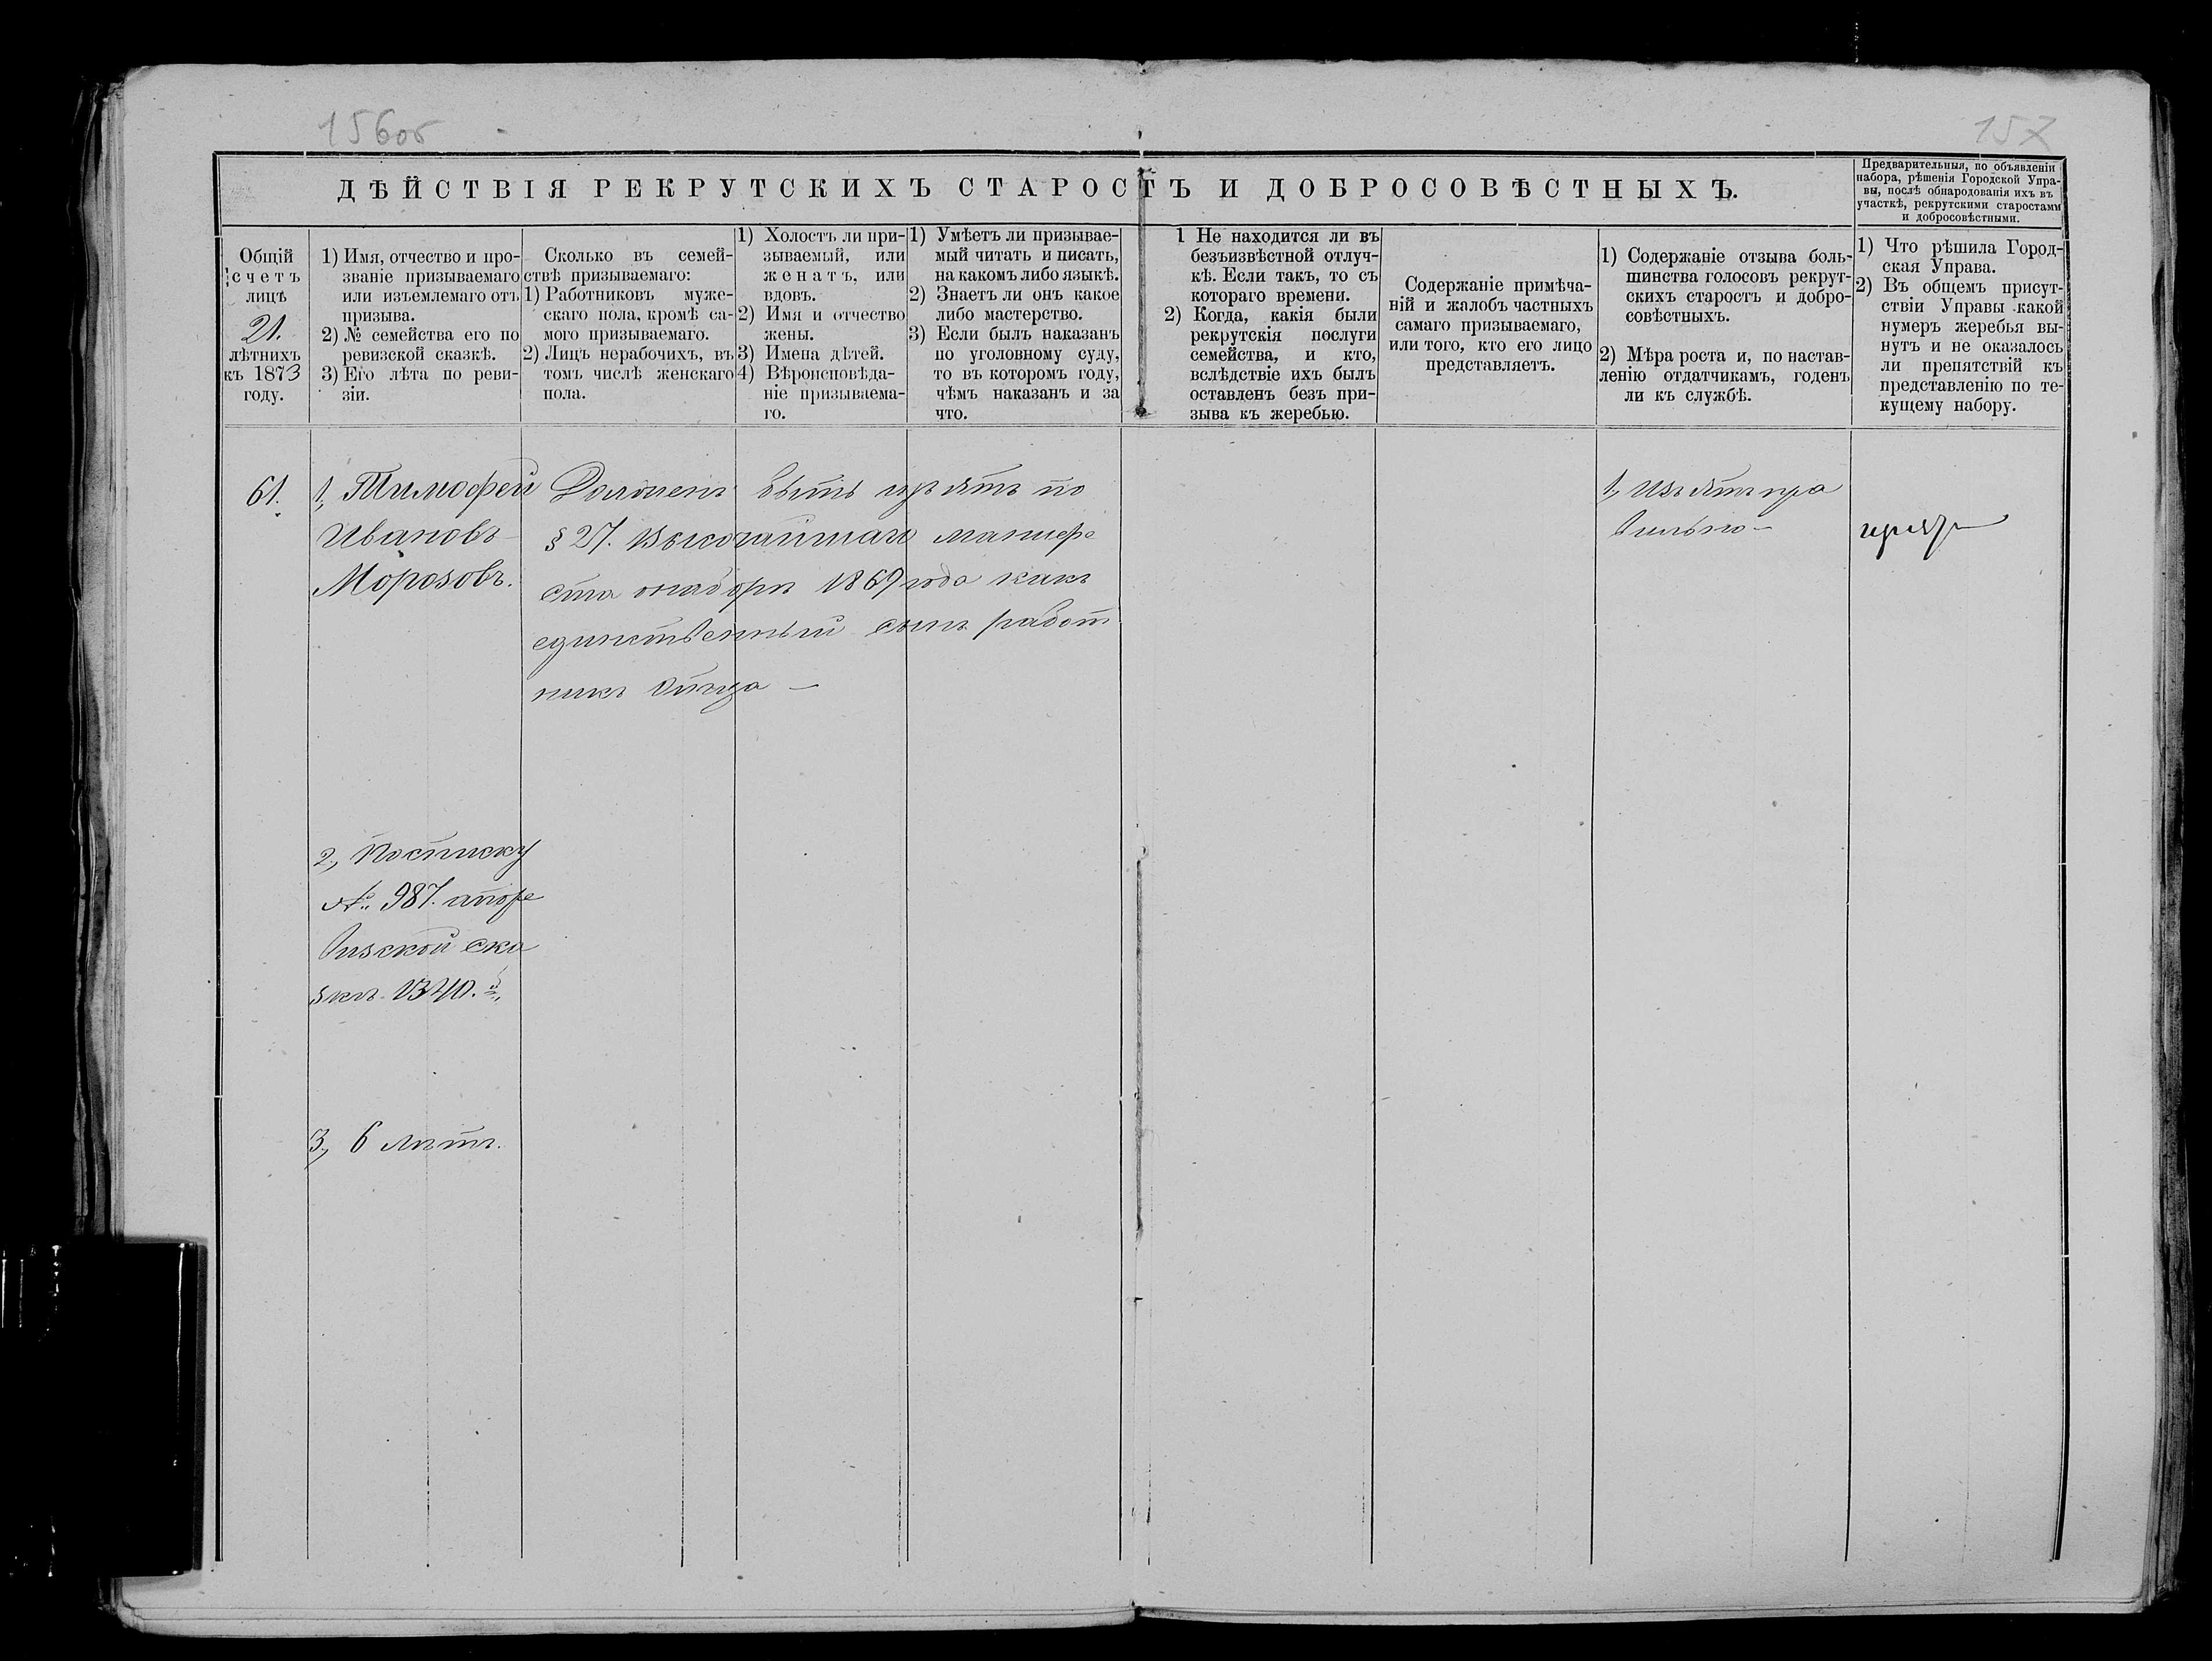 156об
157
ДѢЙСТВІЯ РЕКРУТСКИХЪ СТАРОСТЪ И ДОБРОСОВѢСТНЫХЪ.
Предварительныя, по объявленіи
набора, рѣшенія Городской Упра-
вы, послѣ обнародованія ихъ въ
участкѣ, рекрутскими старостами
и добросовѣстными.
Общій
счетъ
лицѣ
21.
лѣтнихъ
къ 1873
году.
1) Имя, отчество и про-
званіе призываемаго
или изъемлемаго отъ
призыва.
2) № семейства его по
ревизской сказкѣ.
3) Его лѣта по реви-
зіи.
Сколько въ семей-
ствѣ призываемаго:
1) Работниковъ муже-
скаго пола, кромѣ са-
мого призываемаго.
2) Лицъ нерабочихъ, въ
томъ числѣ женскаго
пола.
1) Холостъ ли при-
зываемый, или
женатъ, или
вдовъ.
2) Имя и отчество
жены.
3) Имена дѣтей.
4) Вѣроисповѣда-
ніе призываема-
го.
1) Умѣетъ ли призывае-
мый читать и писать,
на какомъ либо языкѣ.
2) Знаетъ ли онъ какое
либо мастерство.
3) Если былъ наказанъ
по уголовному суду,
то въ которомъ году,
чѣмъ наказанъ и за
что.
1 Не находится ли въ
безъизвѣстной отлуч-
кѣ. Если такъ, то съ
котораго времени.
2) Когда, какія были
рекрутскія послуги
семейства, и кто,
вслѣдствіе ихъ былъ
оставленъ безъ при-
зыва къ жеребью.
Содержаніе примѣча-
ній и жалобъ частныхъ
самаго призываемаго,
или того, кто его лицо
представляетъ.
1) Содержаніе отзыва боль-
шинства голосовъ рекрут-
скихъ старостъ и добро-
совѣстныхъ.
2) Мѣра роста и, по настав-
ленію отдатчикамъ, годенъ
ли къ службѣ.
1) Что рѣшила Город-
ская Управа.
2) Въ общемъ присут-
ствіи Управы какой
нумеръ жеребья вы-
нутъ и не оказалось
ли препятствій къ
представленію по те-
кущему набору.
61.
1, Тимофей
Ивановъ
Морозовъ.
Долженъ быть изъятъ по
§ 27. Высочайшаго манифе
ста онаборѣ 1869 года какъ
единственный сынъ работ
никъ Отца —
1, Изъятъ пра
вильно —
2, Посписку
№ 987. апоре
визской ска
зкѣ 1340.
3, 6 лѣтъ.